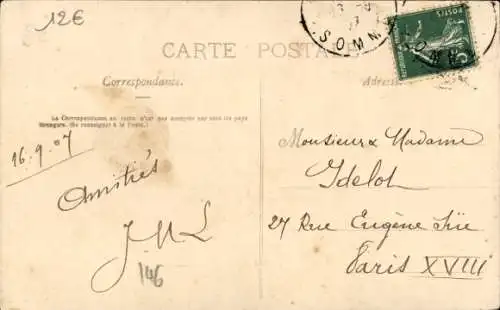 12€
CARTE POSTALE
Correspondance.
Adresse
La Correspondance au recto n'est pas acceptée par tous les pays
étrangers. (Se renseigner à la Poste.)
16.9.07
Amitiés
146
SOMME
POSTES
Monsieur & Madame
Idelot
27 Rue Eugène Süe
Paris XVIII